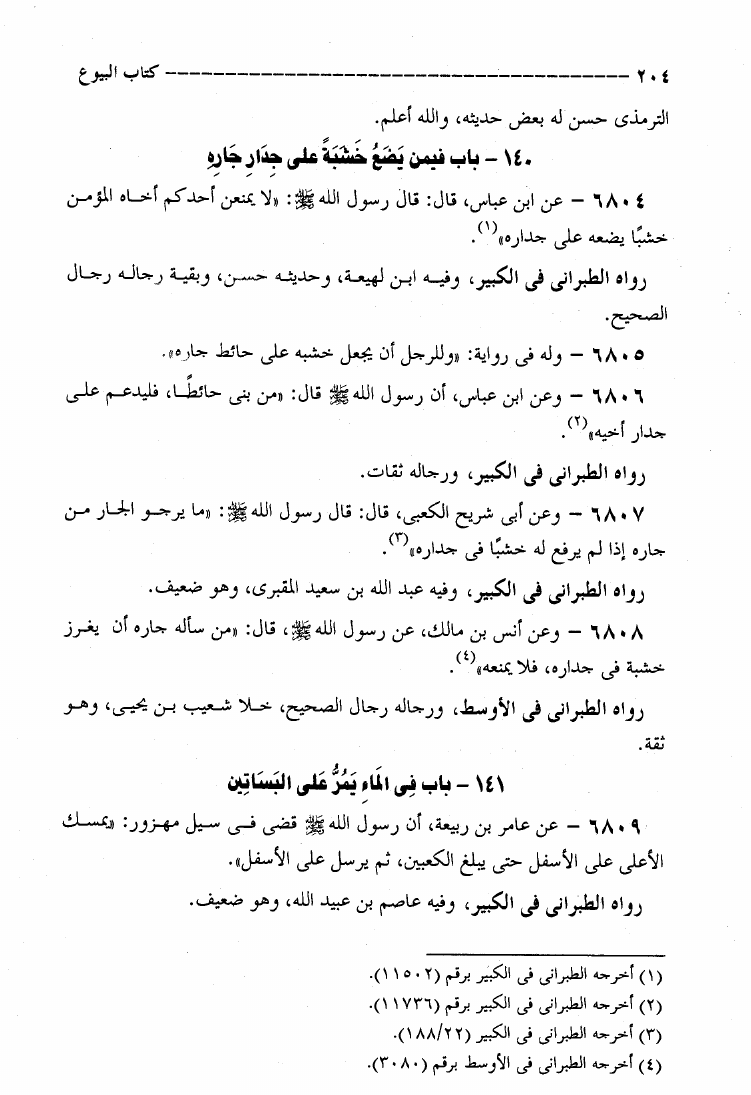 ٢٠٤ ـــــــــــــــــــــــــــــــــــــــ كتاب البيوع
الترمذى حسن له بعض حديثه، والله أعلم.
١٤٠ - باب فيمن يَضَعُ خَشَبَةً على جِدَارِ جَارِهِ
٦٨٠٤ - عن ابن عباس، قال: قال رسول الله ﷺ: «لا يمنعن أحدكم أخاه المؤمن
خشبًا يضعه على جداره»(١).
رواه الطبرانى فى الكبير، وفيه ابن لهيعة، وحديثه حسن، وبقية رجاله رجال
الصحيح.
٦٨٠٥ - وله فى رواية: «وللرجل أن يجعل خشبه على حائط جاره».
٦٨٠٦ - وعن ابن عباس، أن رسول الله ﷺ قال: «من بنى حائطًا، فليدعم على
جدار أخيه»(٢).
رواه الطبرانى فى الكبير، ورجاله ثقات.
٦٨٠٧ - وعن أبى شريح الكعبى، قال: قال رسول الله ﷺ: «ما يرجو الجار من
جاره إذا لم يرفع له خشبًا فى جداره»(٣).
رواه الطبرانى فى الكبير، وفيه عبد الله بن سعيد المقبرى، وهو ضعيف.
٦٨٠٨ - وعن أنس بن مالك، عن رسول الله ﷺ، قال: «من سأله جاره أن يغرز
خشبة فى جداره، فلا يمنعه»(٤).
رواه الطبرانى فى الأوسط، ورجاله رجال الصحيح، خلا شعيب بن يحيى، وهو
ثقة.
١٤١ - باب فِى المَاءِ يَمُرُّ عَلى البَسَاتِين
٦٨٠٩ - عن عامر بن ربيعة، أن رسول الله ﷺ قضى فى سيل مهزور: «يمسك
الأعلى على الأسفل حتى يبلغ الكعبين، ثم يرسل على الأسفل».
رواه الطبرانى فى الكبير، وفيه عاصم بن عبيد الله، وهو ضعيف.
(١) أخرجه الطبرانى فى الكبير برقم (١١٥٠٢).
(٢) أخرجه الطبرانى فى الكبير برقم (١١٧٣٦).
(٣) أخرجه الطبرانى فى الكبير (١٨٨/٢٢).
(٤) أخرجه الطبرانى فى الأوسط برقم (٣٠٨٠).